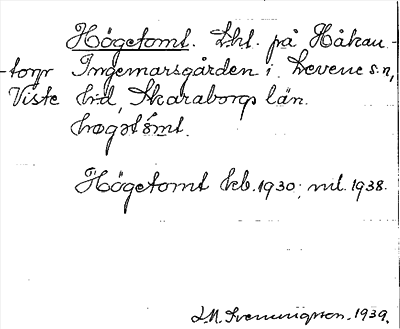 Högetomt. Lht. på Håkan-
-torp Ingemarsgården i Levene sn,
Viste hd, Skaraborgs län.
hǫgətǫ̀mt.
Högetomt kb. 1930; mtl. 1938.
L.M. Svenungsson. 1939.